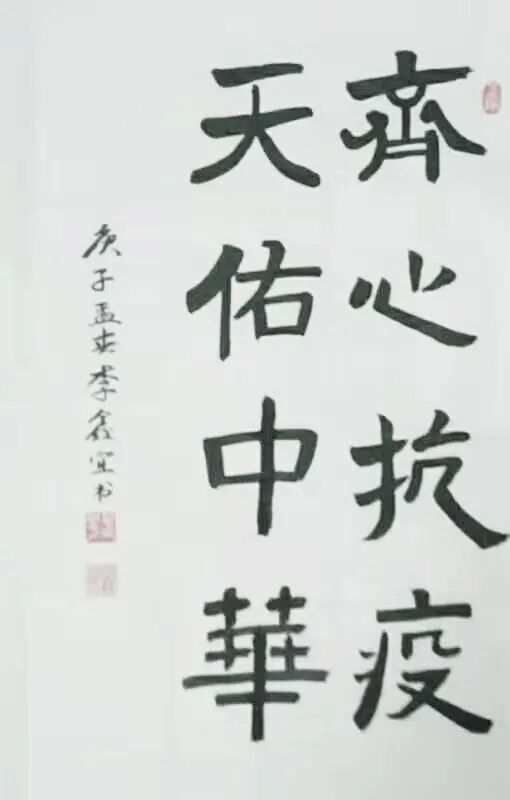 齊心抗疫
天佑中華
庚子孟春李鑫宜书